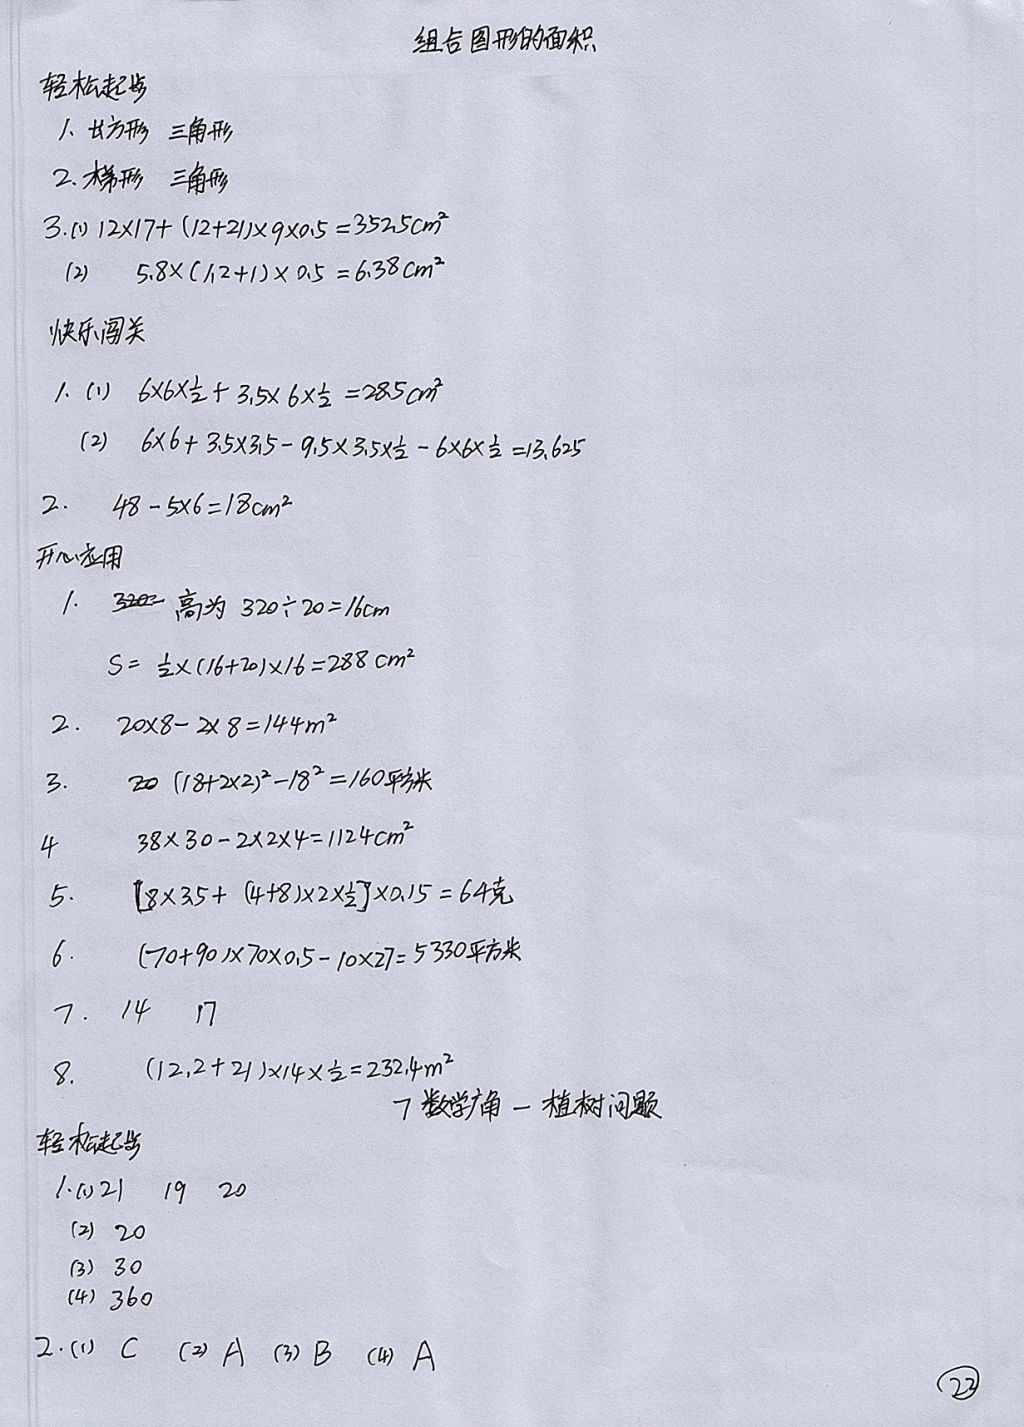 组合图形的面积
轻松起步
1. 长方形 三角形
2. 梯形 三角形
3.(1) 12×17+(12+21)×9×0.5=352.5cm²
(2) 5.8×(1.2+1)×0.5=6.38cm²
快乐闯关
1. (1) 6×6×½+3.5×6×½=28.5cm²
(2) 6×6+3.5×3.5-9.5×3.5×½-6×6×½=13.625
2. 48-5×6=18cm²
开心应用
1. 高为 320÷20=16cm
S=½×(16+20)×16=288cm²
2. 20×8-2×8=144m²
3. (18+2×2)²-18²=160平方米
4 38×30-2×2×4=1124cm²
5. [8×3.5+(4+8)×2×½]×0.15=64克
6. (70+90)×70×0.5-10×27=5330平方米
7. 14 17
8. (12.2+21)×14×½=232.4m²
7 数学广角—植树问题
轻松起步
1.(1) 21 19 20
(2) 20
(3) 30
(4) 360
2.(1) C (2) A (3) B (4) A
22